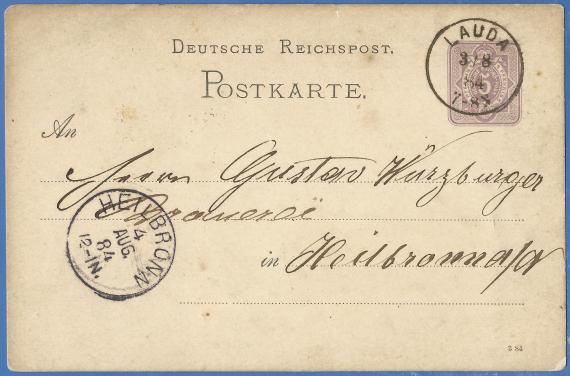 DEUTSCHE REICHSPOST.
POSTKARTE.
LAUDA
3/8
84
7-8
5
An
Herrn Gustav Würzburger
Brauerei
in Heilbronn a/N
HEILBRONN
4
AUG.
84
12-1N.